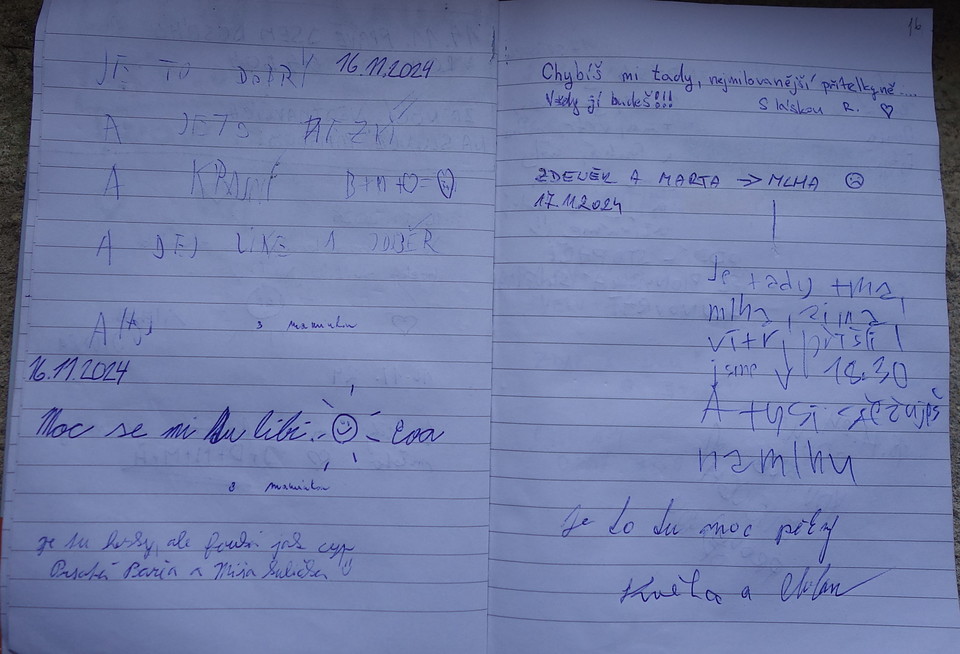 JE TO DOBRÝ 16.11.2024
A JE TO
A KRÁSNÝ B+M+O=
A DEJ LIKE A ODBĚR
s maminkou
16.11.2024
Moc se mi tu líbí. Eva
s maminkou
je tu hezky, ale fouká jak cyp
a Míša
16
Chybíš mi tady, nejmilovanější přítelkyně....
Vždy jí budeš!!! S láskou R.
ZDENĚK A MARTA → MLHA
17.11.2024
Je tady tma,
mlha, zima
vítr, přišli
jsme 18:30
A ty si stěžuješ
na mlhu
Je to tu moc pěkný
Květa a Milan